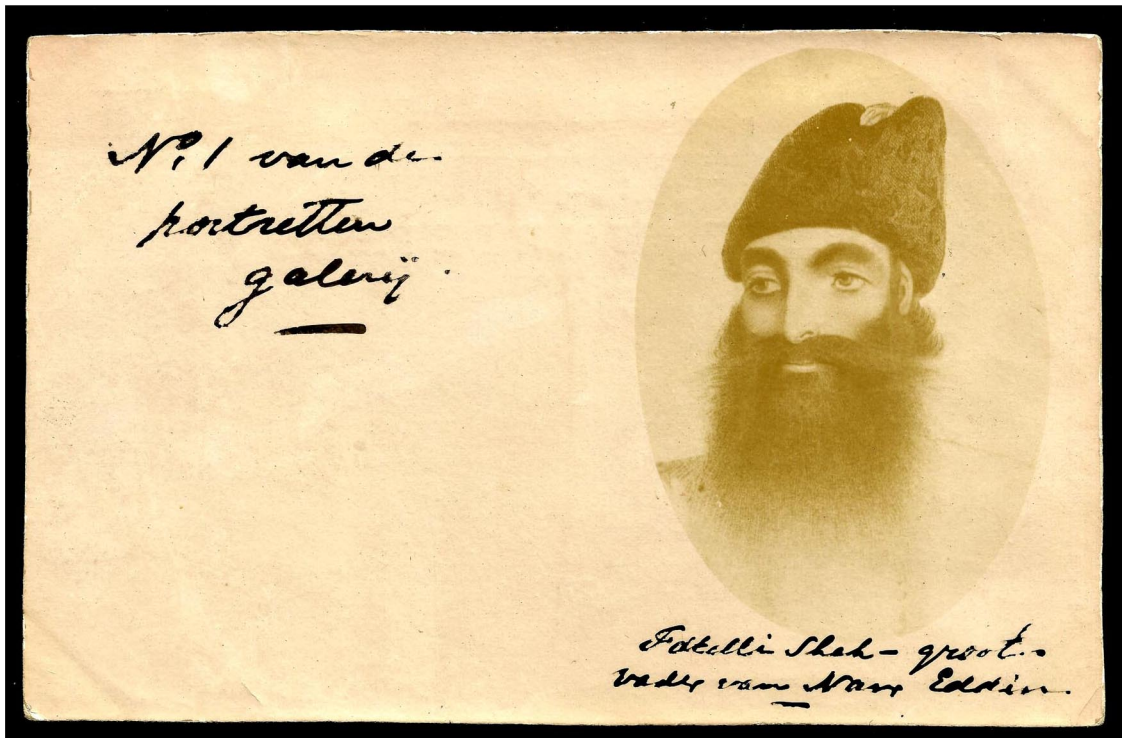 No. 1 van de
portretten
galerij
Fatelli Shah - groot-
vader van Nasr Eddin